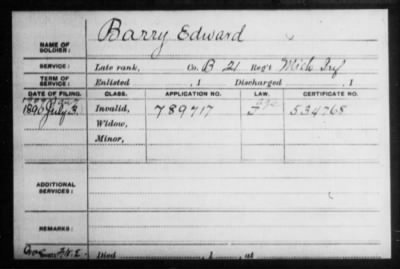 NAME OF SOLDIER: Barry Edward
SERVICE: Late rank, Co. B 21 Reg't Mich Inf
TERM OF SERVICE: Enlisted , 1 Discharged , 1
DATE OF FILING. CLASS. APPLICATION NO. LAW. CERTIFICATE NO.
1890 July 3. Invalid, 789717 age 534768
Widow,
Minor,
ADDITIONAL SERVICES:
REMARKS:
Died , 1 , at